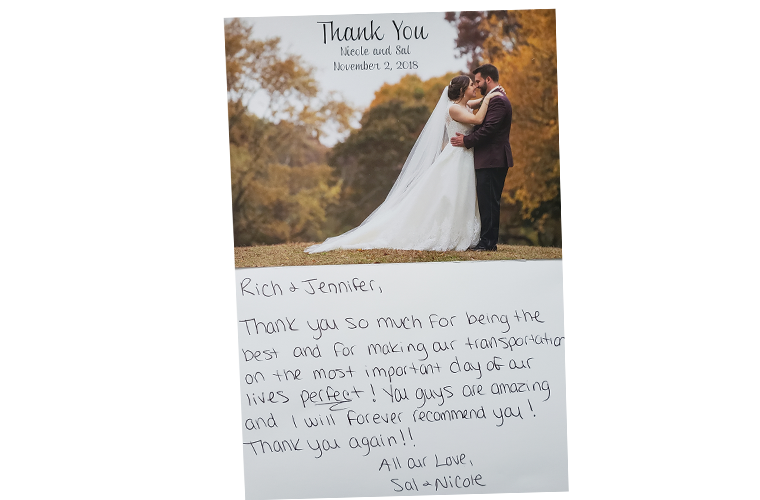 Thank You
Nicole and Sal
November 2, 2018
Rich & Jennifer,
Thank you so much for being the
best and for making our transportation
on the most important day of our
lives perfect! You guys are amazing
and I will forever recommend you!
Thank you again!!
All our Love,
Sal & Nicole